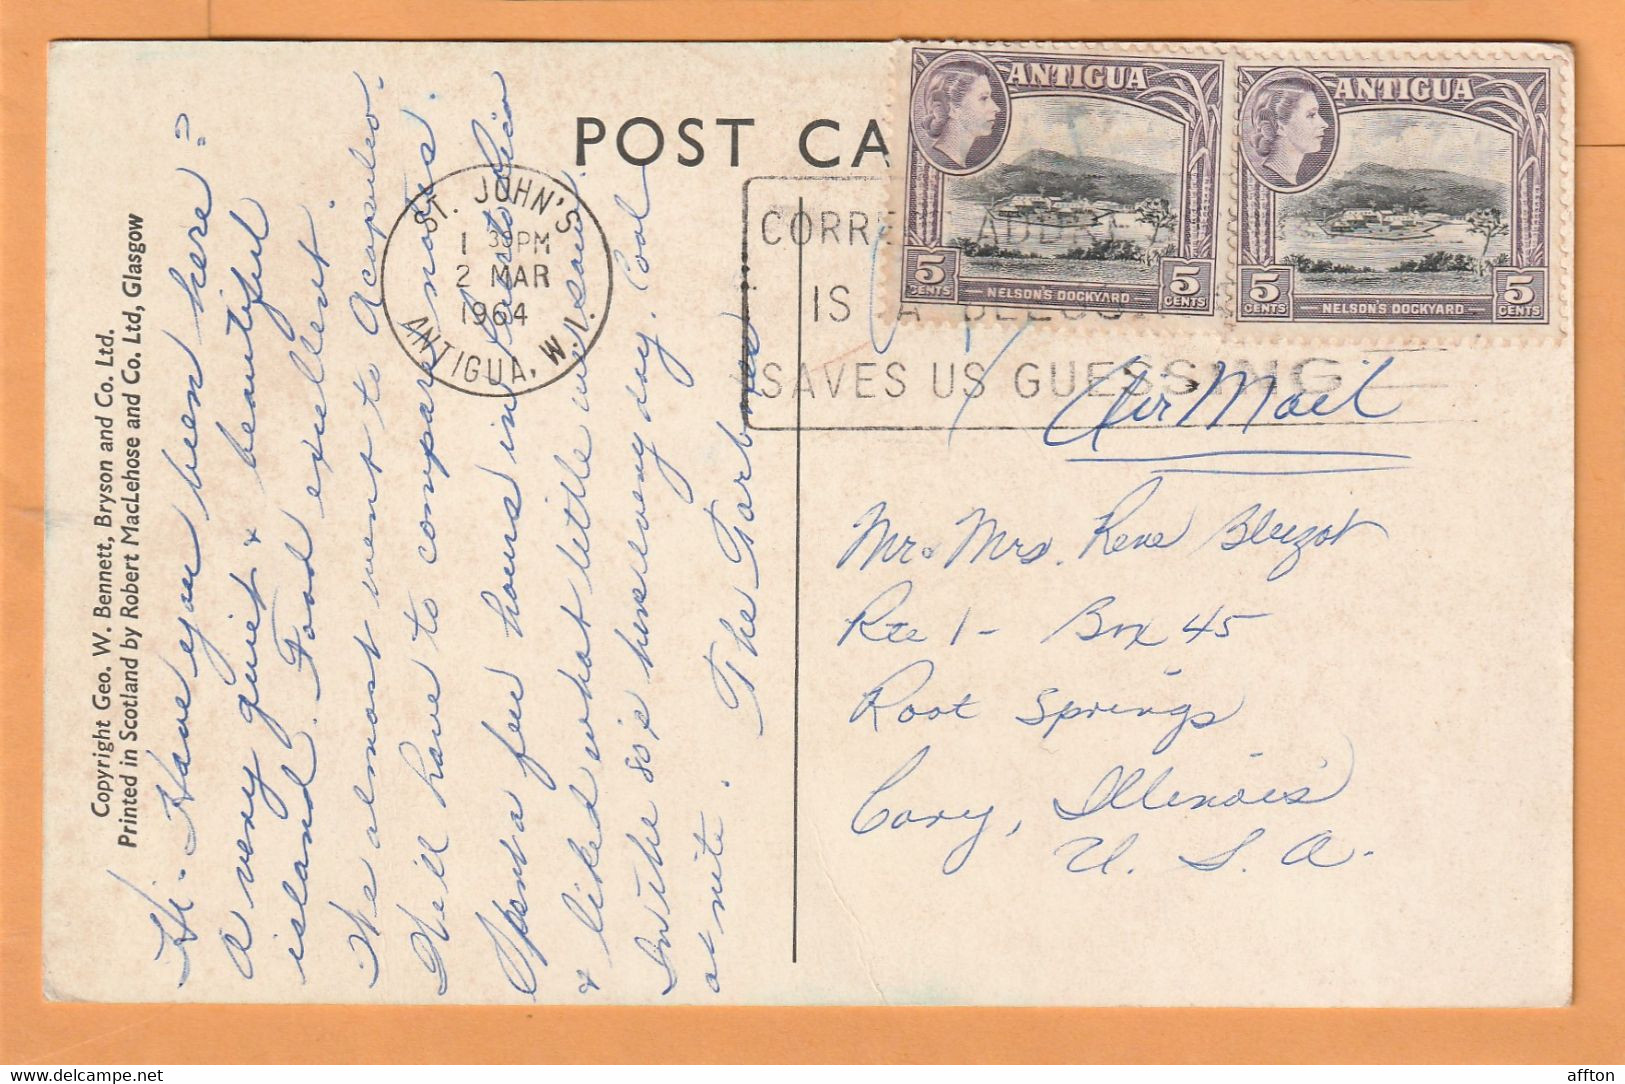 POST CA
ANTIGUA
5 CENTS
5 CENTS
NELSON'S DOCKYARD
ANTIGUA
5 CENTS
5 CENTS
NELSON'S DOCKYARD
ST. JOHN'S
1 30PM
2 MAR
1964
ANTIGUA, W.I.
CORRE ADDRE
IS A BLESSI
SAVES US GUESSING
Copyright Geo. W. Bennett, Bryson and Co. Ltd.
Printed in Scotland by Robert MacLehose and Co. Ltd, Glasgow
Hi - Have you been here?
A very quiet & beautiful
island. Food exellent.
We almost went to Acapulco.
Will have to compare notes.
Spent a few hours in Puerto Rico
& liked what little we saw.
In the 80's here every day. Cool
at nite.
The
Air Mail
Mr. Mrs. Rene
Rte 1 - Box 45
Root Springs
Cary, Illinois
U. S. A.
affton
delcampe.net